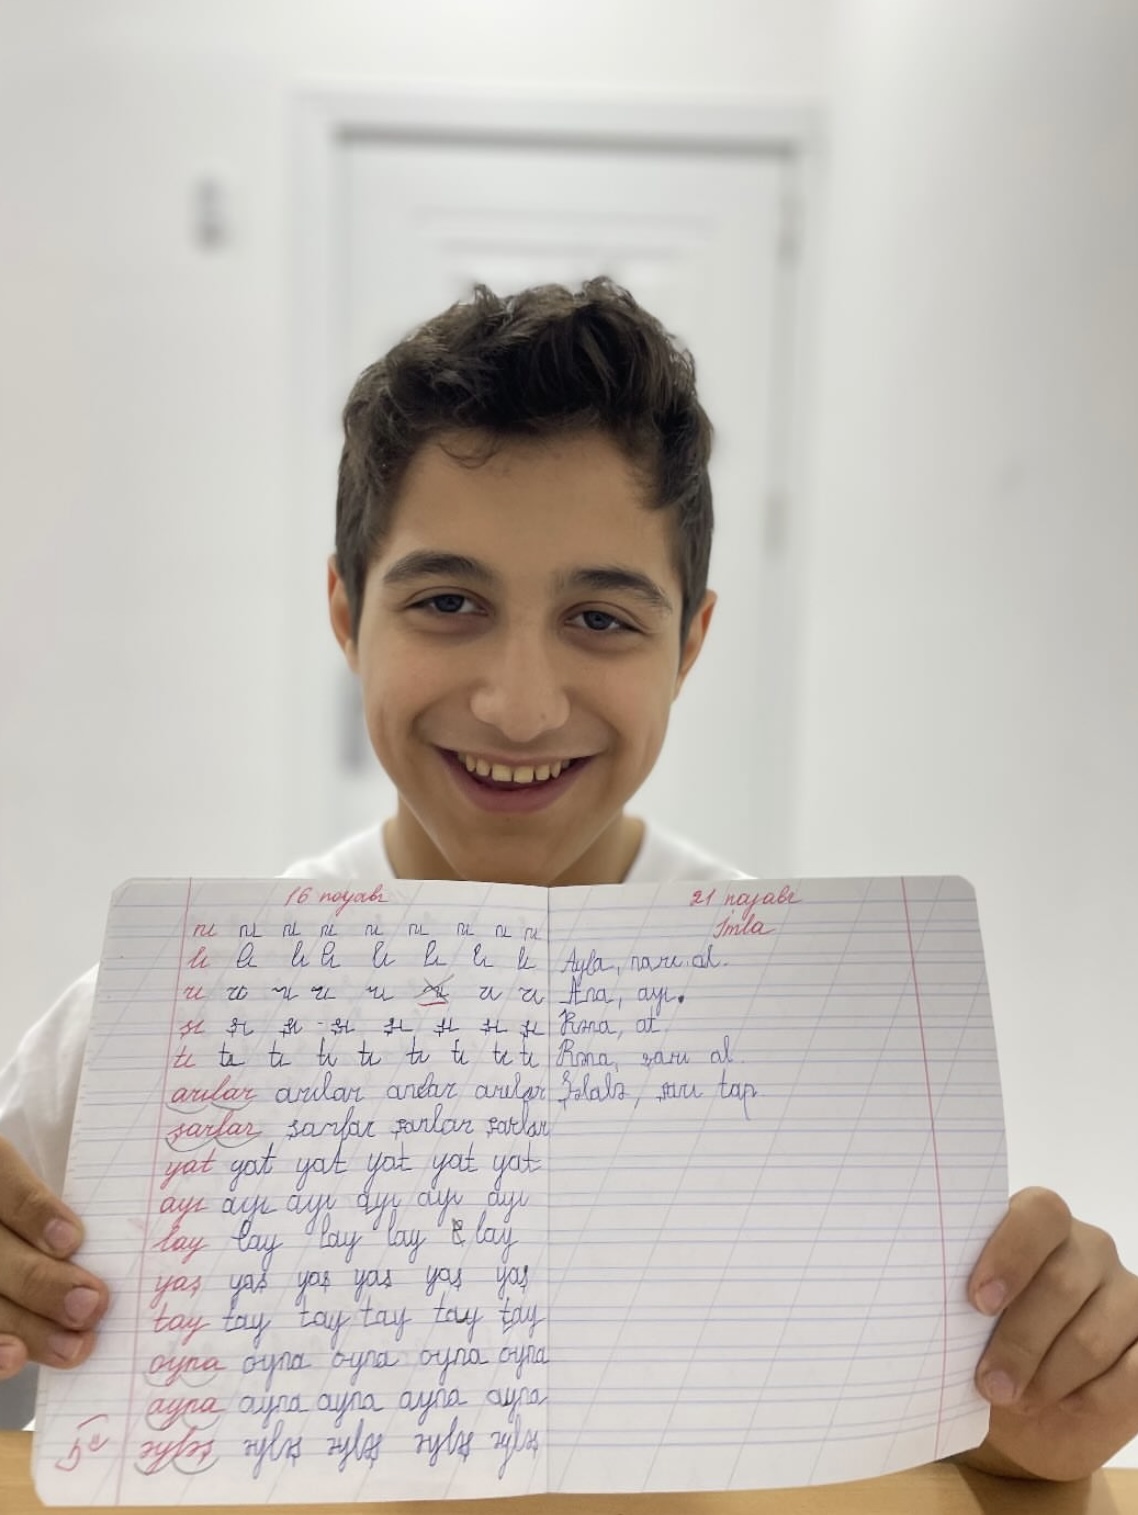 16 noyabr
nı nı nı nı nı nı nı nı nı
lı lı lı lı lı lı lı lı
rı rı rı rı rı rı rı
şı şı şı şı şı şı şı şı
tı tı tı tı tı tı tı tı tı
arılar arılar arılar arılar
şarlar şarlar şarlar şarlar
yat yat yat yat yat yat
ayı ayı ayı ayı ayı ayı
lay lay lay lay lay
yaş yaş yaş yaş yaş yaş
tay tay tay tay tay tay
oyna oyna oyna oyna oyna
ayna ayna ayna ayna ayna
əyləş əyləş əyləş əyləş əyləş
21 nayabr
İmla
Ayla, narı al.
Ana, ayı.
Rəna, at.
Rəna, şarı al.
Şəlalə, şarı tap